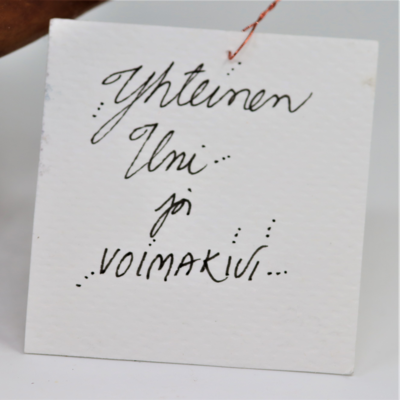 Yhteinen
Uni...
ja
...VOIMAKIVI...